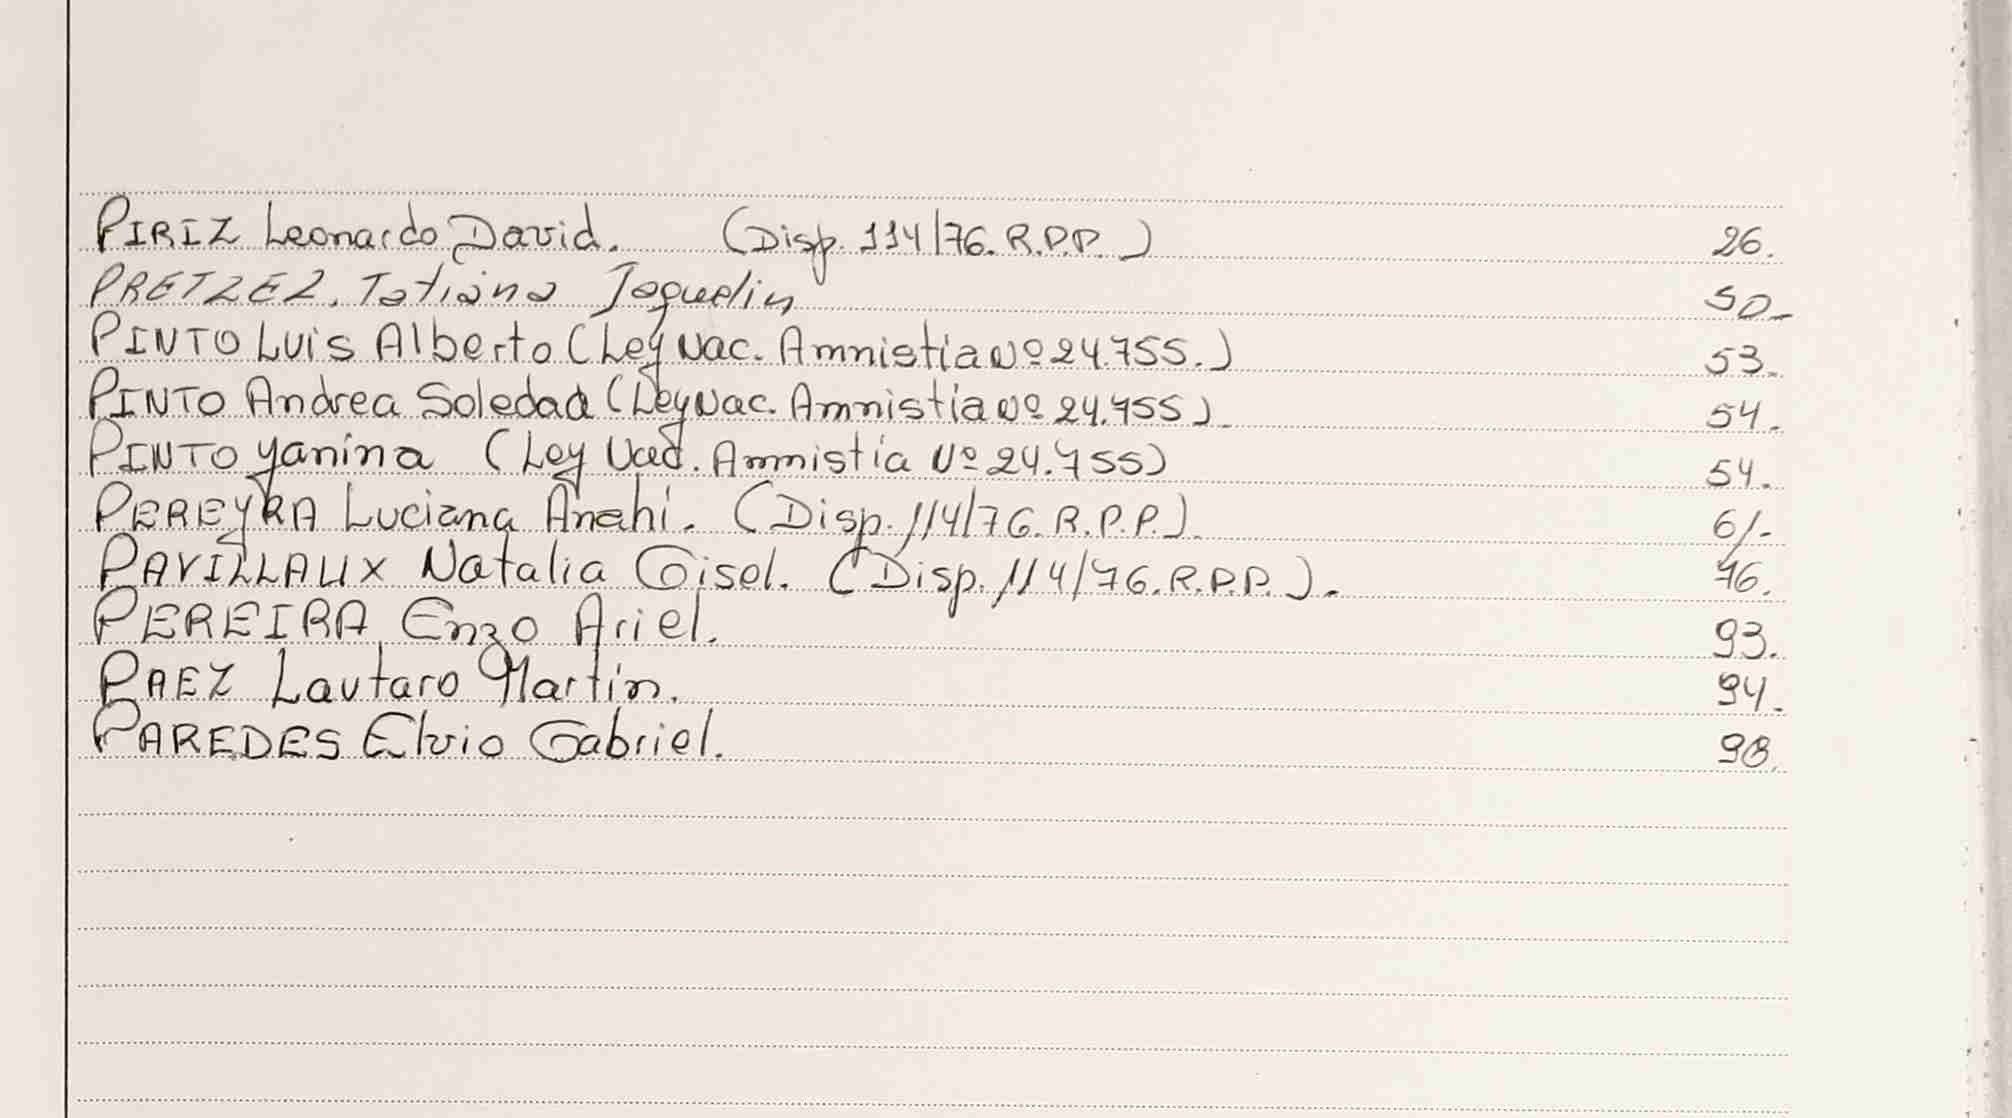 PIRIZ Leonardo David. (Disp. 114/76. R.P.P.) 26.
PRETZEL, Tatiana Joquelin 50-
PINTO Luis Alberto (Ley Nac. Amnistia Nº 24.755.) 53.
PINTO Andrea Soledad (Ley Nac. Amnistia Nº 24.755). 54.
PINTO Yanina (Ley Nad. Amnistia Nº 24.755) 54.
PEREYRA Luciana Anahi. (Disp. 114/76. R.P.P.). 61-
PAVILLAUX Natalia Gisel. (Disp. 114/76. R.P.P.). 76.
PEREIRA Enzo Ariel. 93.
PAEZ Lautaro Martin. 94.
PAREDES Elvio Gabriel. 98.